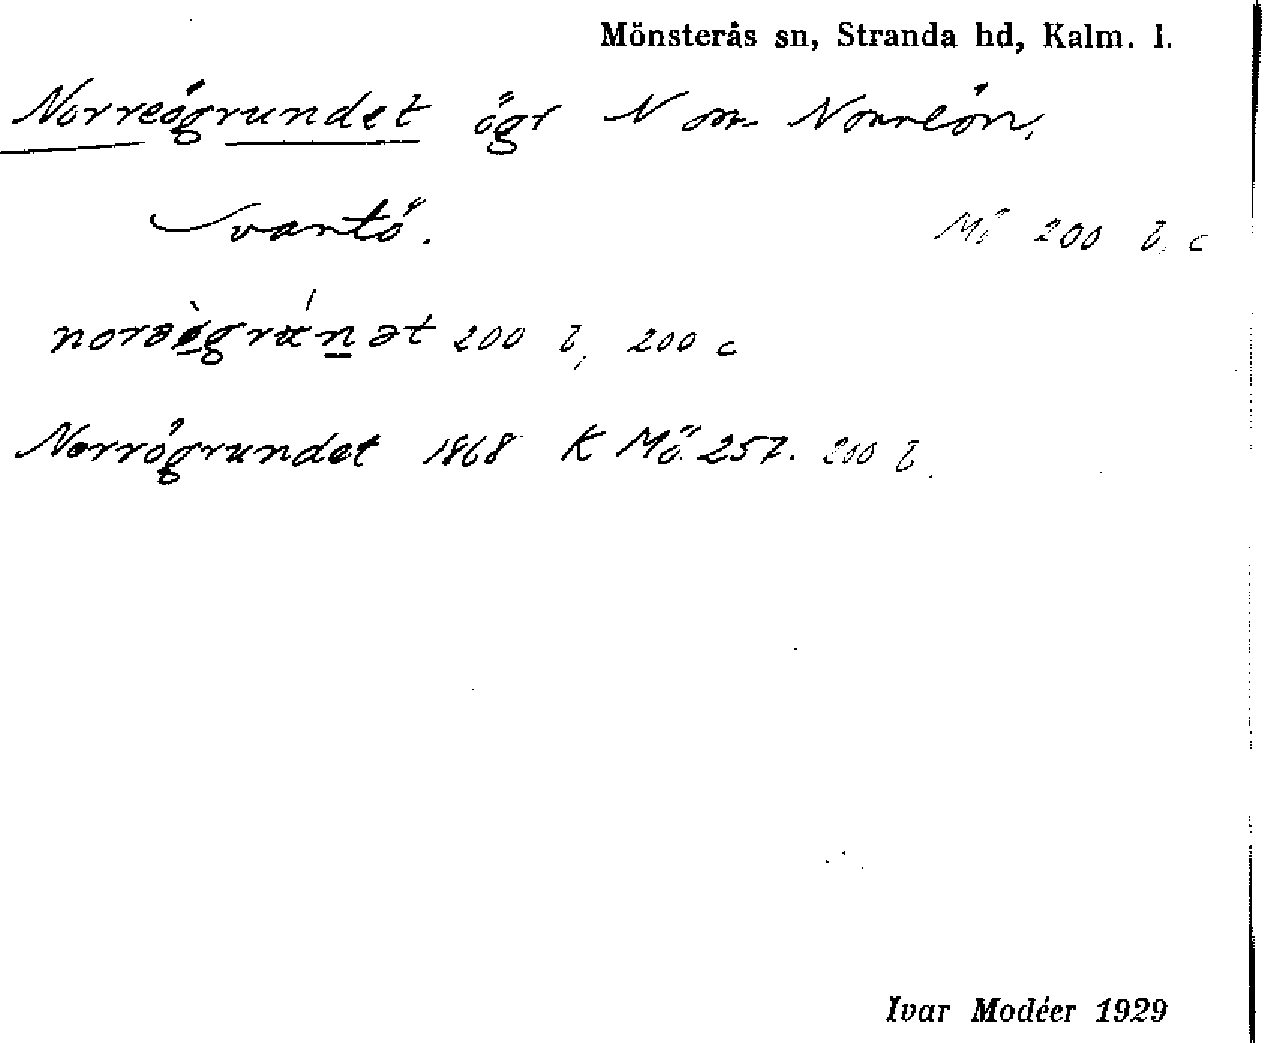 Mönsterås sn, Stranda hd, Kalm. l.
Norreögrundet ögr N om Norreön,
Svartö. Mö 200 b, c
200 b, 200 c
Norrögrundet 1868 K Mö 257. 200 b.
Ivar Modéer 1929